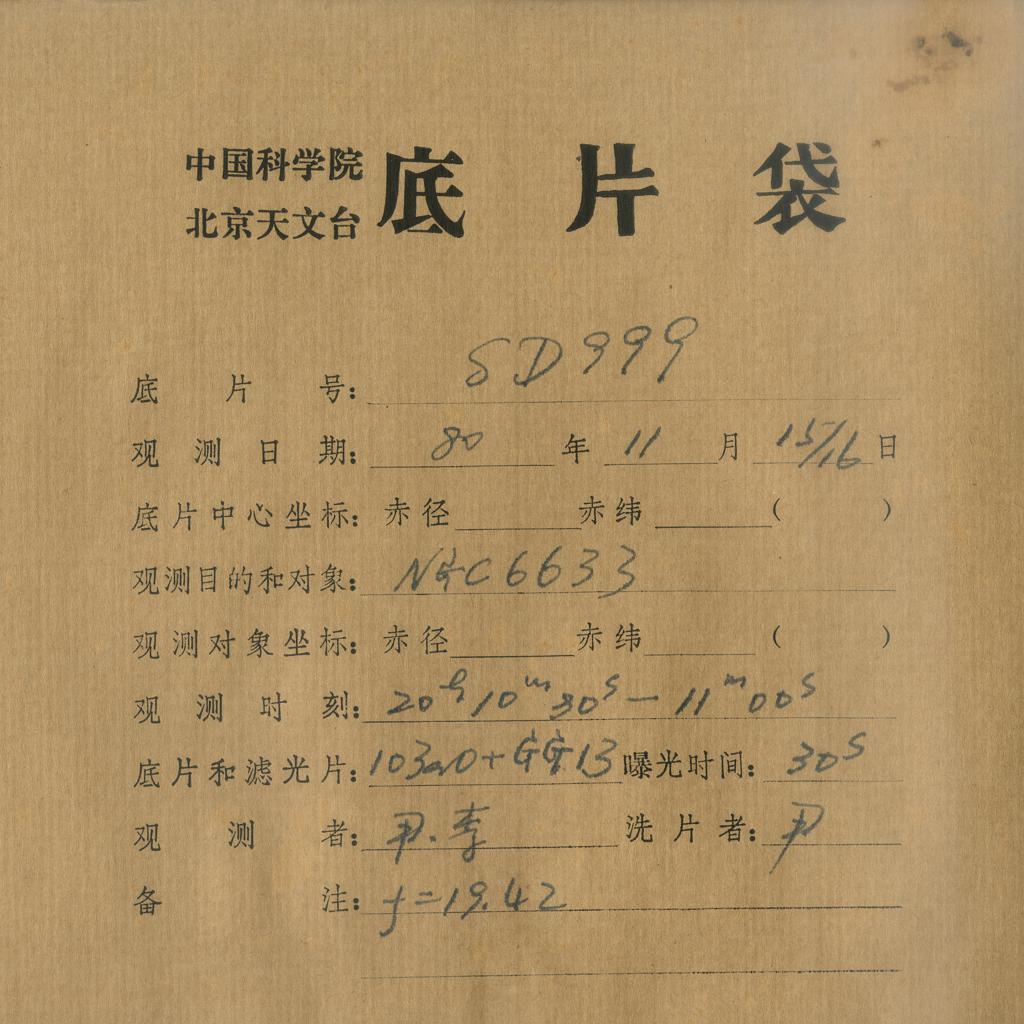 中国科学院
北京天文台
底片袋
底片号: SD999
观测日期: 80 年 11 月 15/16 日
底片中心坐标: 赤径 赤纬 ( )
观测目的和对象: NGC6633
观测对象坐标: 赤径 赤纬 ( )
观测时刻: 20h10m30s—11m00s
底片和滤光片: 103aO+GG13 曝光时间: 30s
观测者: 尹.李 洗片者: 尹
备注: f=19.42